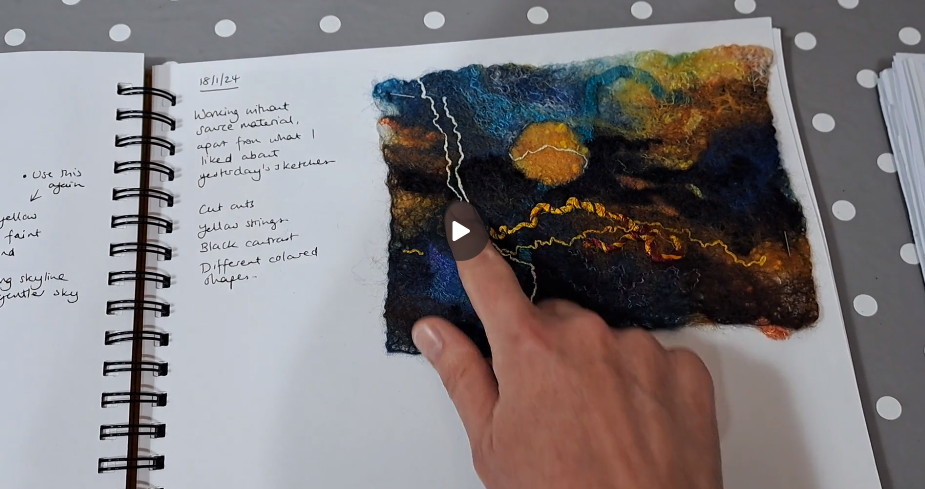 • Use this
again
yellow
faint
skyline
gentler sky
18/1/24
Working without
source material,
apart from what I
liked about
yesterday's sketches
Cut outs
yellow strings
Black contrast
Different colored
shapes.